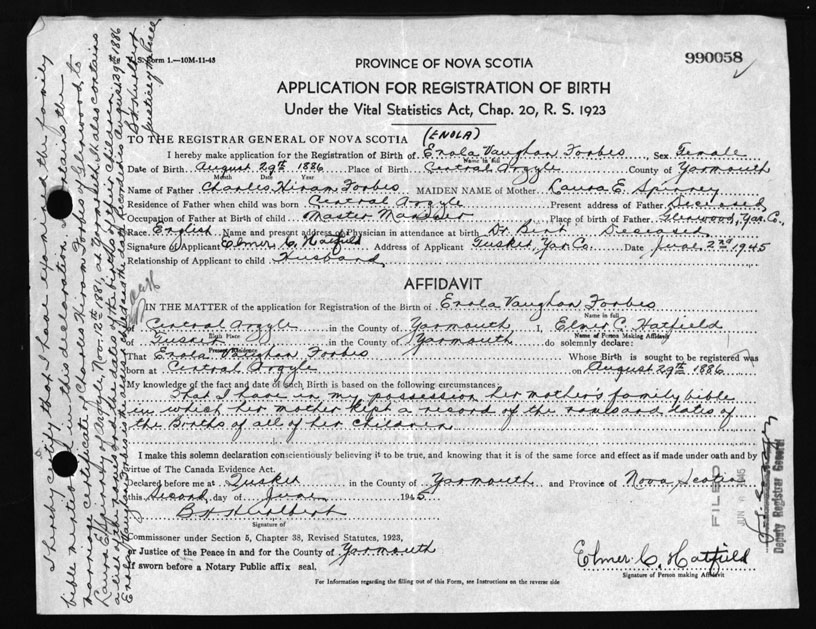 S. Form 1.—10M-11-43
PROVINCE OF NOVA SCOTIA
990058
APPLICATION FOR REGISTRATION OF BIRTH
Under the Vital Statistics Act, Chap. 20, R. S. 1923
TO THE REGISTRAR GENERAL OF NOVA SCOTIA (ENOLA)
I hereby make application for the Registration of Birth of Enola Vaughan Forbes, Sex Female
Name in full
Date of Birth August 29th 1886 Place of Birth Central Argyle County of Yarmouth
Month Date Year
Name of Father Charles Hiram Forbes MAIDEN NAME of Mother Laura E. Spinney
Residence of Father when child was born Central Argyle Present address of Father Deceased
Occupation of Father at Birth of child Master Mariner Place of birth of Father Glenwood, Yar. Co.,
Race English Name and present address of Physician in attendance at birth Dr. Bent Deceased
Signature of Applicant Elmer C. Hatfield Address of Applicant Tusket, Yar. Co. Date June 2nd 1945
Relationship of Applicant to child Husband
AFFIDAVIT
IN THE MATTER of the application for Registration of the Birth of Enola Vaughan Forbes
Name in full
of Central Argyle in the County of Yarmouth, I, Elmer C. Hatfield
Birth Place Name of Person Making Affidavit
of Tusket in the County of Yarmouth do solemnly declare:
Present Residence
That Enola Vaughan Forbes Whose Birth is sought to be registered was
born at Central Argyle on August 29th 1886.
My knowledge of the fact and date of such Birth is based on the following circumstances
That I have in my possession her mother's family bible
in which her mother kept a record of the names and dates of
the Births of all of her children
I make this solemn declaration conscientiously believing it to be true, and knowing that it is of the same force and effect as if made under oath and by
virtue of The Canada Evidence Act.
Declared before me at Tusket in the County of Yarmouth and Province of Nova Scotia
this Second day of June 1945
Signature of
Commissioner under Section 5, Chapter 38, Revised Statutes, 1923,
or Justice of the Peace in and for the County of Yarmouth
If sworn before a Notary Public affix seal.
Elmer C. Hatfield
Signature of Person making Affidavit
For Information regarding the filling out of this Form, see Instructions on the reverse side
I hereby certify that I have examined the family
bible mentioned in this declaration. It contains the
marriage certificate of Charles Hiram Forbes of Glenwood, to
Laura E. Spinney of Argyle, Nov. 12th 1881, at Yarmouth. It also contains
a list of the names and the dates of the births of their children.
August 29th 1886
Justice of the Peace
FILED
JUN 1945
Deputy Registrar General